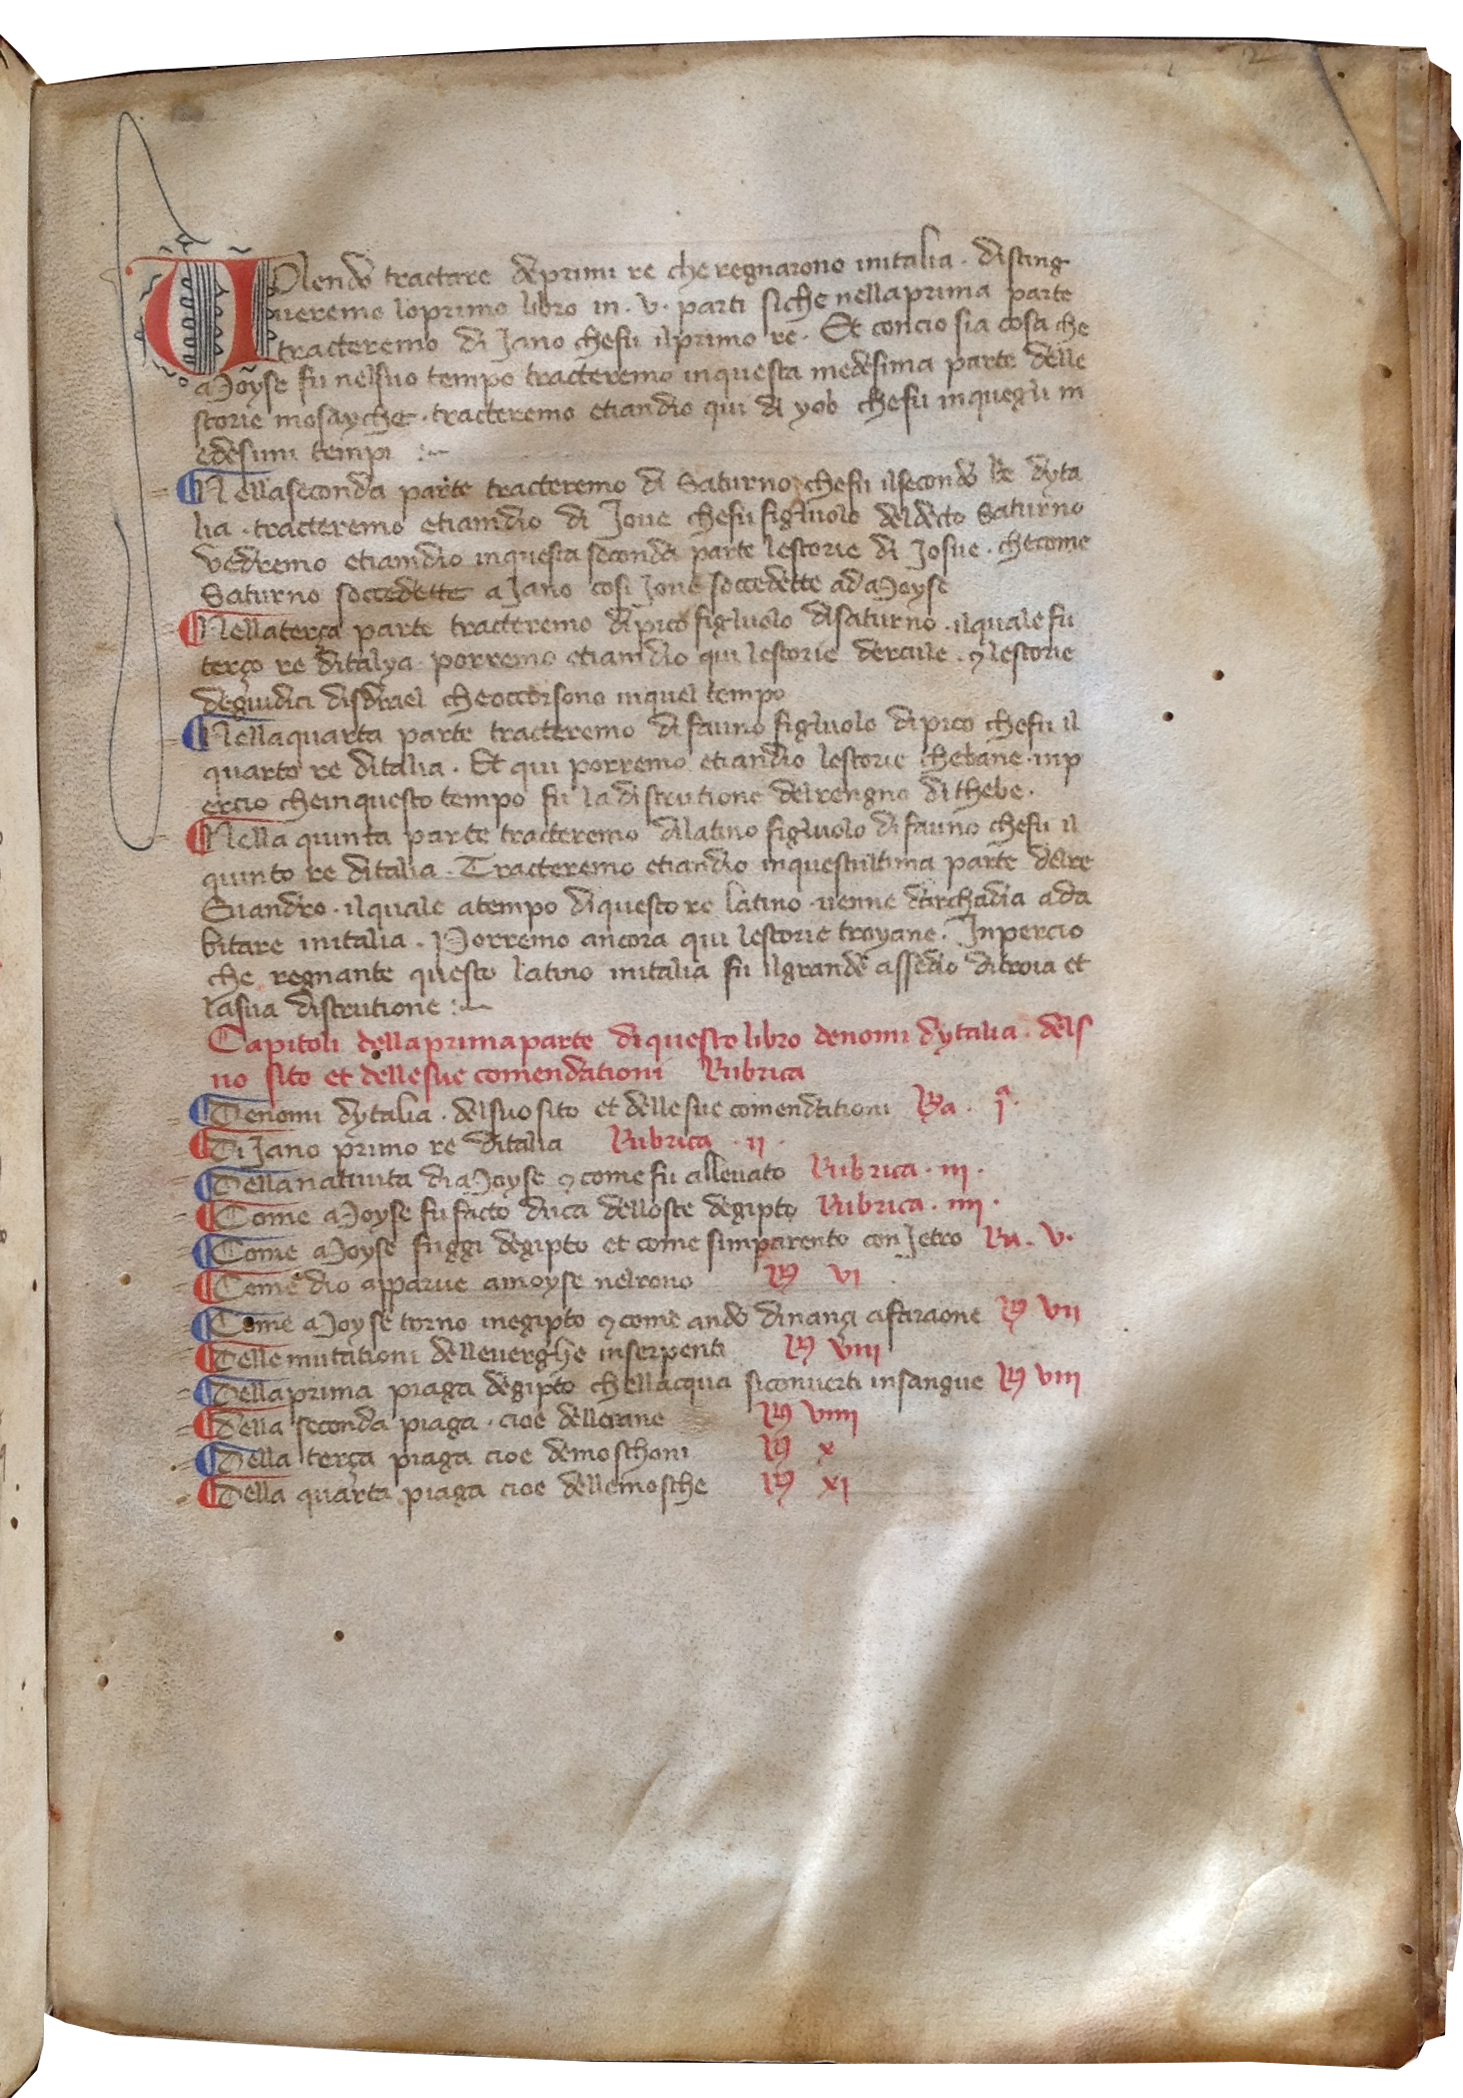 2
Volendo tractare deprimi re che regnarono initalia . disting
ueremo loprimo libro in . v . parti siche nellaprima parte
tracteremo di Jano chefu ilprimo re . Et concio sia cosa che
Moyse fu nelsuo tempo tracteremo inquesta medesima parte delle
storie mosayche . tracteremo etiandio qui di yob chefu inquegli m
edesimi tempi :~
Nellaseconda parte tracteremo di Saturno chefu ilsecondo Re dyta
lia . tracteremo etiamdio di Joue chefu figluolo deldecto Saturno
vedremo etiamdio inquesta seconda parte lestorie di Josue . checome
Saturno soccedette a Jano cosi Joue soccedette ad Moyse
Nellaterça parte tracteremo dipico figluolo disaturno . ilquale fu
terço re ditalya porremo etiamdio qui lestorie dercule . ⁊ lestorie
degiudici disdrael cheoccorsono inquel tempo
Nellaquarta parte tracteremo di fauno figluolo dipico chefu il
quarto re ditalia . Et qui porremo etiandio lestorie thebane . inp
ercio cheinquesto tempo fu la distrutione delrengno di thebe .
Nella quinta parte tracteremo dilatino figluolo di fauno chefu il
quinto re ditalia . Tracteremo etiandio inquestultima parte delre
Euandro . ilquale atempo diquesto re latino . uenne darchadia ada
bitare initalia . Porremo ancora qui lestorie troyane . Inpercio
che regnante questo latino initalia fu ilgrande assedio ditroia et
lasua distrutione :~
Capitoli dellaprimaparte diquesto libro denomi dytalia . dels
uo sito et dellesue comendationi Rubrica
Denomi dytalia . delsuo sito et dellesue comendationi Ra . jª .
Di Jano primo re ditalia Rubrica . ij .
Dellanatiuita di Moyse ⁊ come fu alleuato Rubrica . iij .
Come Moyse fu facto duca delloste degipto Rubrica . iiij .
Come Moyse fuggi degipto et come simparento con Jetro Ra . v .
Come dio apparue amoyse nelrono R⁊ vi
Come Moyse torno inegipto ⁊ come ando dinançi afaraone R⁊ vii
Delle mutationi delleuerghe inserpenti R⁊ viii
Dellaprima piaga degipto chellacqua siconuerti insangue R⁊ viii
Della seconda piaga . cioe dellerane R⁊ viiii
Della terça piaga cioe demoschoni R⁊ x
Della quarta piaga cioe dellemosche R⁊ xi